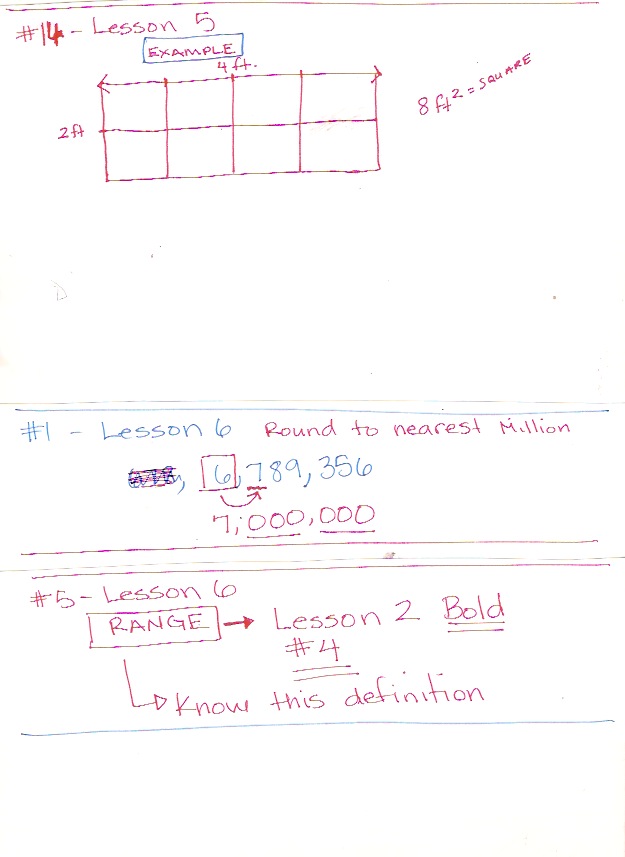 #14 - Lesson 5
EXAMPLE
4 ft.
2 ft
8 ft² = SQUARE
#1 - Lesson 6 Round to nearest Million
, 6,789,356
7,000,000
#5 - Lesson 6
RANGE → Lesson 2 Bold
#4
Know this definition